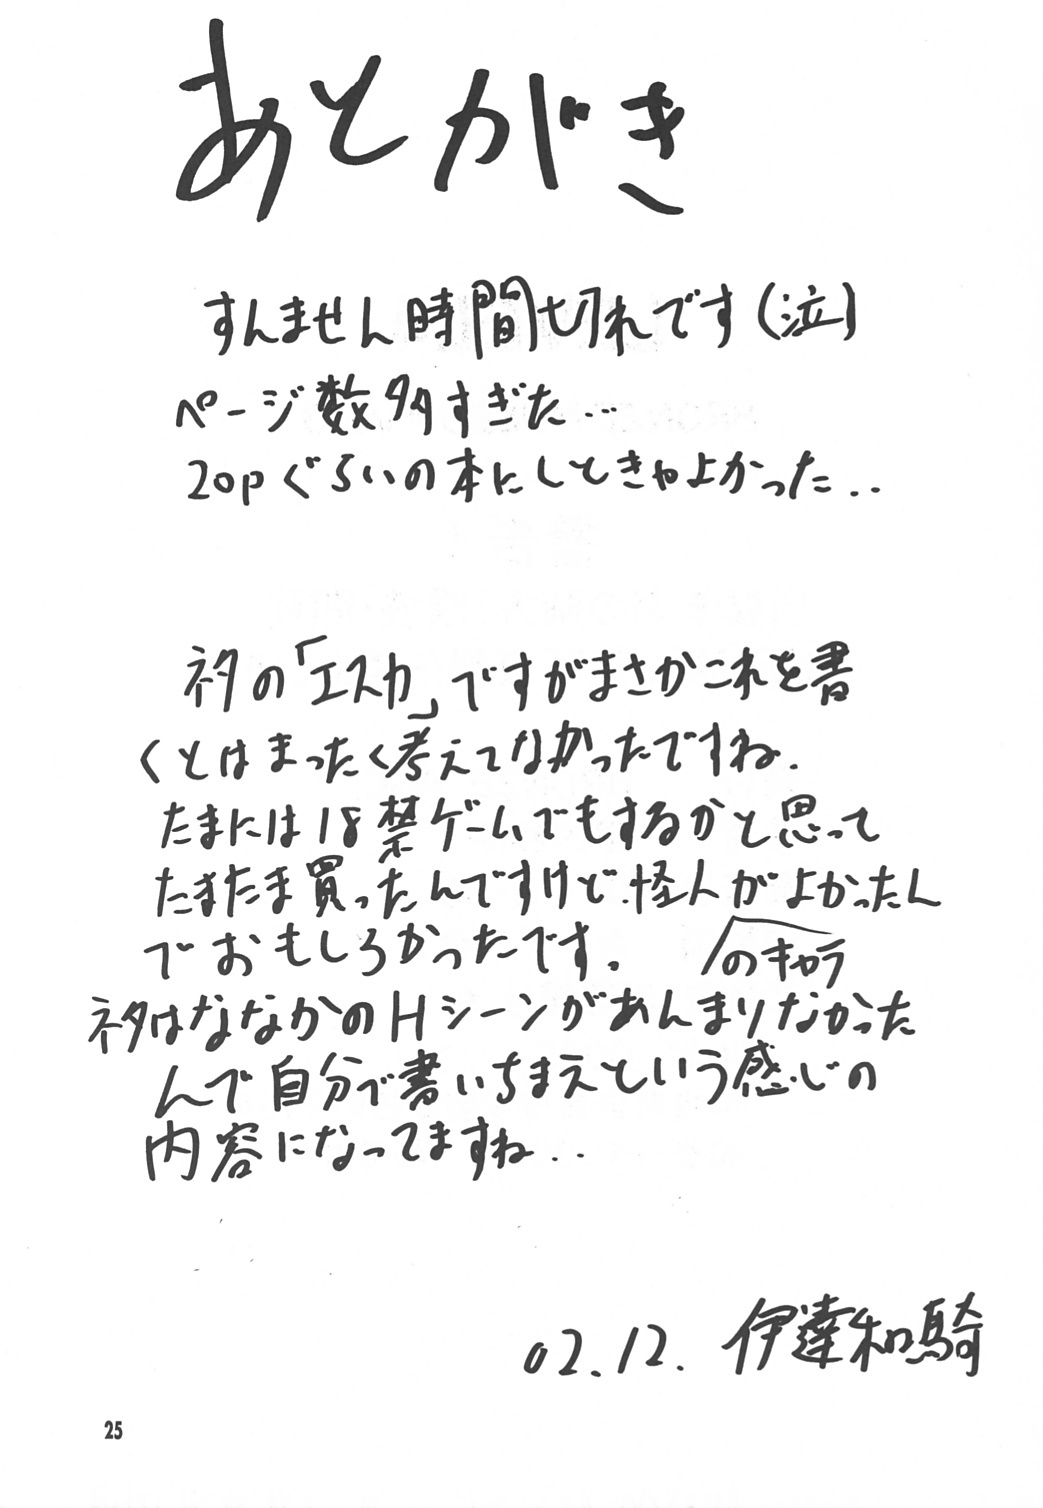 あとがき
すんません時間切れです(泣)
ページ数多すぎた...
20pぐらいの本にしときゃよかった..
ネタの「エスカ」ですがまさかこれを書
くとはまったく考えてなかったですね.
たまには18禁ゲームでもするかと思って
たまたま買ったんですけど.怪人がよかったん
でおもしろかったです. のキャラ
ネタはななかのHシーンがあんまりなかった
んで自分で書いちまえという感じの
内容になってますね..
02.12. 伊達和騎
25